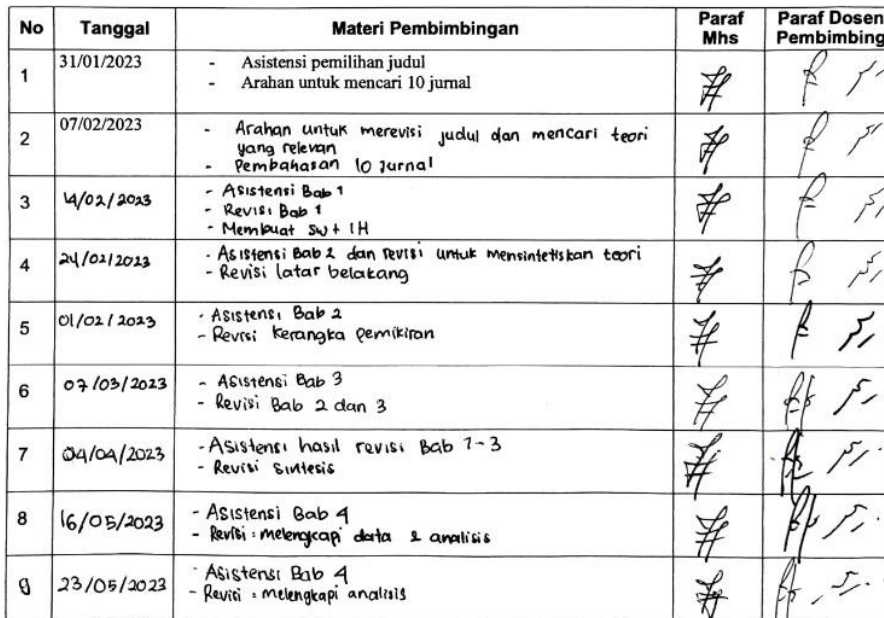 No Tanggal Materi Pembimbingan Paraf Mhs Paraf Dosen Pembimbing
1 31/01/2023 - Asistensi pemilihan judul
- Arahan untuk mencari 10 jurnal
2 07/02/2023 - Arahan untuk merevisi judul dan mencari teori
yang relevan
- Pembahasan 10 Jurnal
3 14/02/2023 - Asistensi Bab 1
- Revisi Bab 1
- Membuat 5W + 1H
4 24/02/2023 - Asistensi Bab 2 dan revisi untuk mensintetiskan teori
- Revisi latar belakang
5 01/02/2023 - Asistensi Bab 2
- Revisi kerangka pemikiran
6 07/03/2023 - Asistensi Bab 3
- Revisi Bab 2 dan 3
7 04/04/2023 - Asistensi hasil revisi Bab 1-3
- Revisi sintesis
8 16/05/2023 - Asistensi Bab 4
- Revisi : melengkapi data & analisis
9 23/05/2023 - Asistensi Bab 4
- Revisi : melengkapi analisis